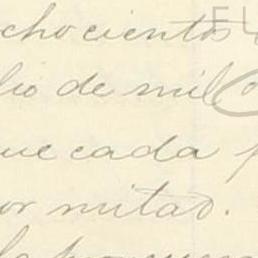 chocientos
lio de mil
que cada p
or mitad.